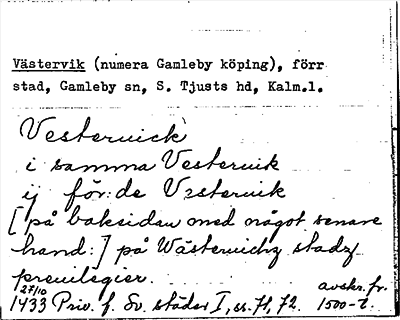 Västervik (numera Gamleby köping), förr
stad, Gamleby sn, S. Tjusts hd, Kalm.l.
Vestervick
i samma Vestervik
ij för:de Vestervik
[på baksidan med något senare
hand:] på Wästervichz stadz
previlegier.
27/10
1433 Priv. f. Sv. städer I, nr. 71, 72.
avskr. fr.
1500-t.